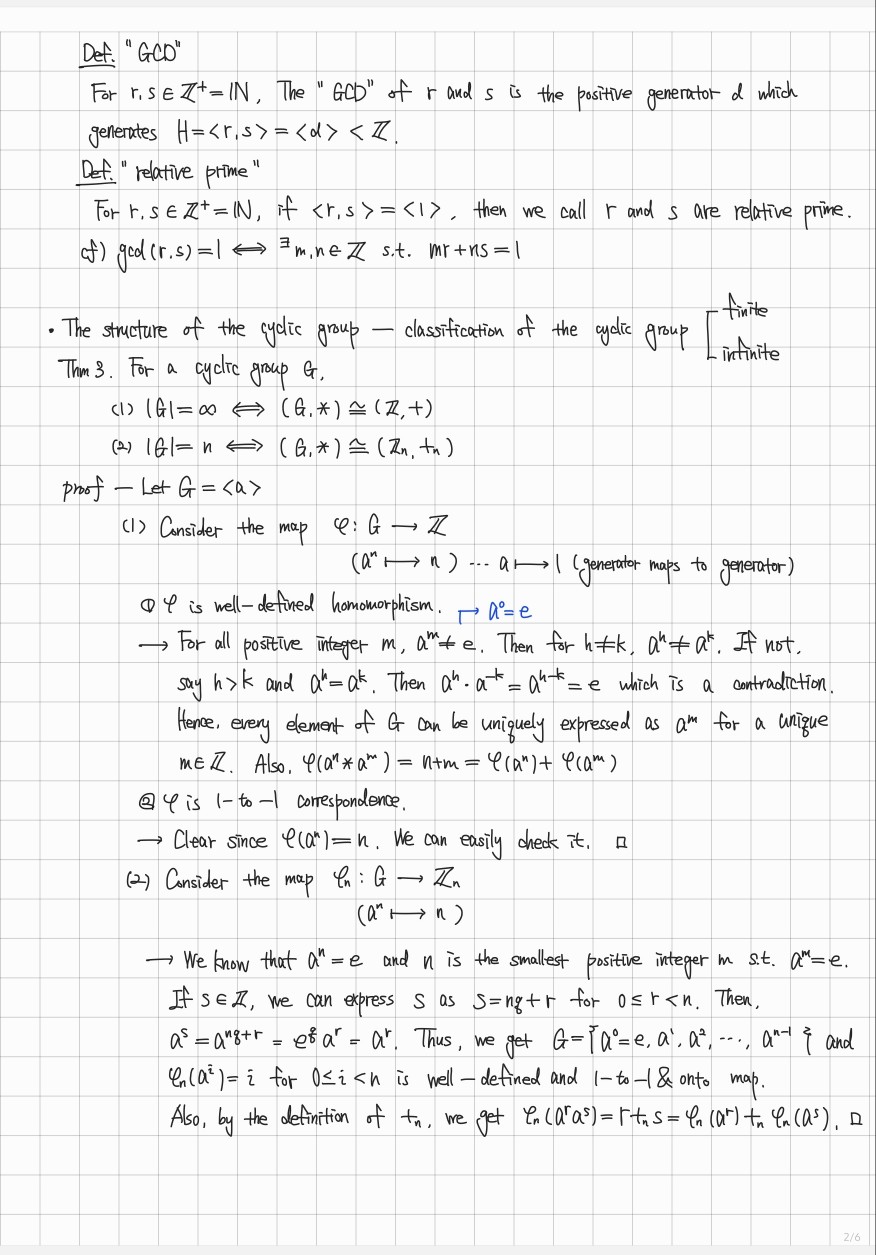 Def. "GCD"
For r, s ∈ ℤ⁺ = ℕ, The "GCD" of r and s is the positive generator d which
generates H = <r, s> = <d> < ℤ.
Def. "relative prime"
For r, s ∈ ℤ⁺ = ℕ, if <r, s> = <1>, then we call r and s are relative prime.
cf) gcd(r, s) = 1 ⟺ ∃m, n ∈ ℤ s.t. mr + ns = 1
• The structure of the cyclic group — classification of the cyclic group [ finite
infinite
Thm 3. For a cyclic group G,
(1) |G| = ∞ ⟺ (G, *) ≅ (ℤ, +)
(2) |G| = n ⟺ (G, *) ≅ (ℤₙ, +ₙ)
proof — Let G = <a>
(1) Consider the map φ : G ⟶ ℤ
(aⁿ ⟼ n) ... a ⟼ 1 (generator maps to generator)
① φ is well-defined homomorphism. ↱ a⁰ = e
⟶ For all positive integer m, aᵐ ≠ e. Then for h ≠ k, aʰ ≠ aᵏ. If not,
say h > k and aʰ = aᵏ. Then aʰ · a⁻ᵏ = aʰ⁻ᵏ = e which is a contradiction.
Hence, every element of G can be uniquely expressed as aᵐ for a unique
m ∈ ℤ. Also, φ(aⁿ * aᵐ) = n + m = φ(aⁿ) + φ(aᵐ)
② φ is 1-to-1 correspondence.
⟶ Clear since φ(aⁿ) = n. We can easily check it. □
(2) Consider the map φₙ : G ⟶ ℤₙ
(aⁿ ⟼ n)
⟶ We know that aⁿ = e and n is the smallest positive integer m s.t. aᵐ = e.
If s ∈ ℤ, we can express s as s = nq + r for 0 ≤ r < n. Then,
aˢ = a^(nq+r) = e^q aʳ = aʳ. Thus, we get G = {a⁰ = e, a¹, a², ⋯, aⁿ⁻¹} and
φₙ(aⁱ) = i for 0 ≤ i < n is well-defined and 1-to-1 & onto map.
Also, by the definition of +ₙ, we get φₙ(aʳaˢ) = r +ₙ s = φₙ(aʳ) +ₙ φₙ(aˢ). □
2/6